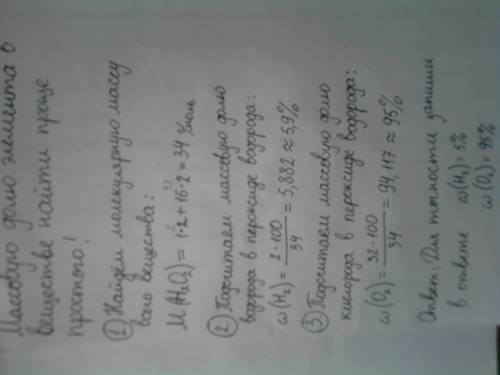 Массовую долю элемента в
веществе найти проще
простого!
① Найдём молекулярную массу
всего вещества:
M(H₂O₂) = 1·2+16·2 = 34 г/моль
② Подсчитаем массовую долю
водорода в пероксиде водорода:
ω(H₂) = 2·100/34 = 5,882 ≈ 5,9%
③ Подсчитаем массовую долю
кислорода в пероксиде водорода:
ω(O₂) = 32·100/34 = 94,117 ≈ 95%
Ответ: Для точности запиши
в ответе ω(H₂) = 5%
ω(O₂) = 95%